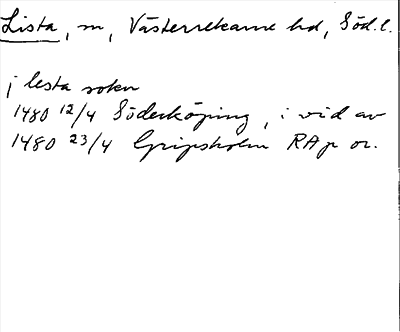 Lista, sn, Västerrekarne hd, Söd.l.
j lesta sokn
1480 12/4 Söderköping, i vid av
1480 23/4 Gripsholm RAp or.